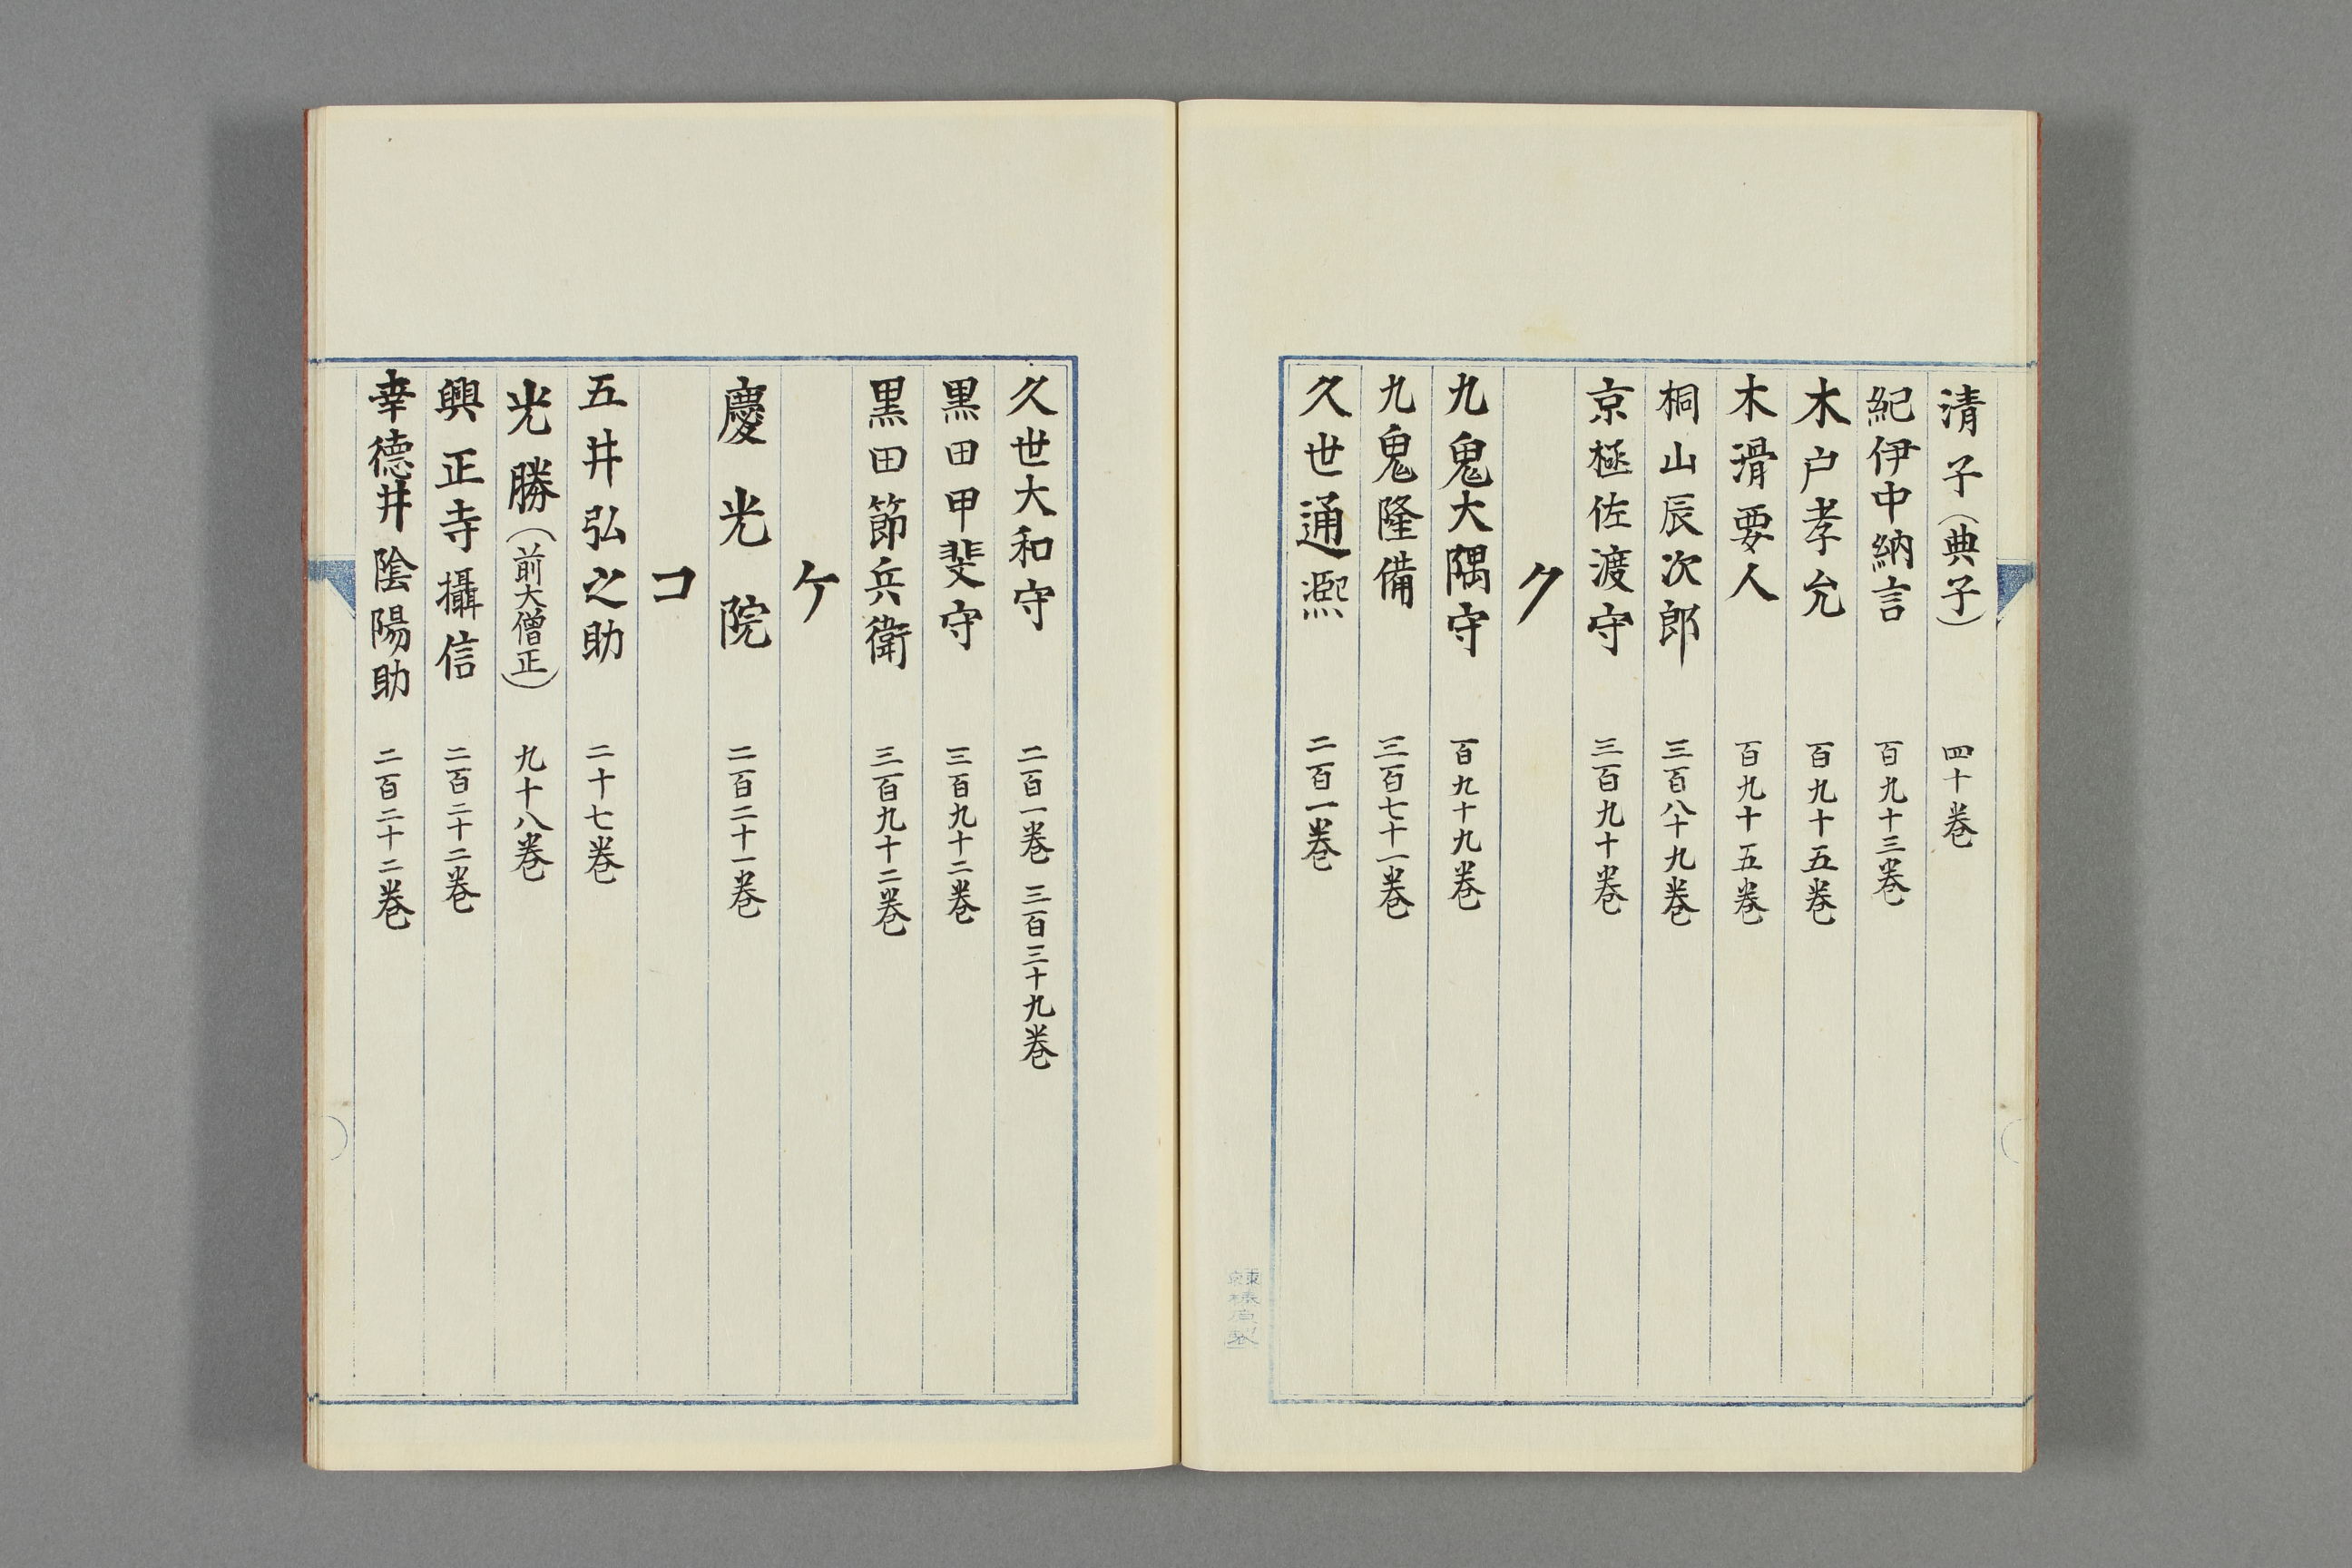 清子（典子）　四十巻
紀伊中納言　百九十三巻
木戸孝允　百九十五巻
木滑要人　百九十五巻
桐山辰次郎　三百八十九巻
京極佐渡守　三百九十巻
ク
九鬼大隅守　百九十九巻
九鬼隆備　三百七十一巻
久世通凞　二百一巻
久世大和守　二百一巻　三百三十九巻
黒田甲斐守　三百九十二巻
黒田節兵衛　三百九十二巻
ケ
慶光院　二百二十一巻
コ
五井弘之助　二十七巻
光勝（前大僧正）　九十八巻
興正寺攝信　二百二十二巻
幸德井陰陽助　二百二十二巻